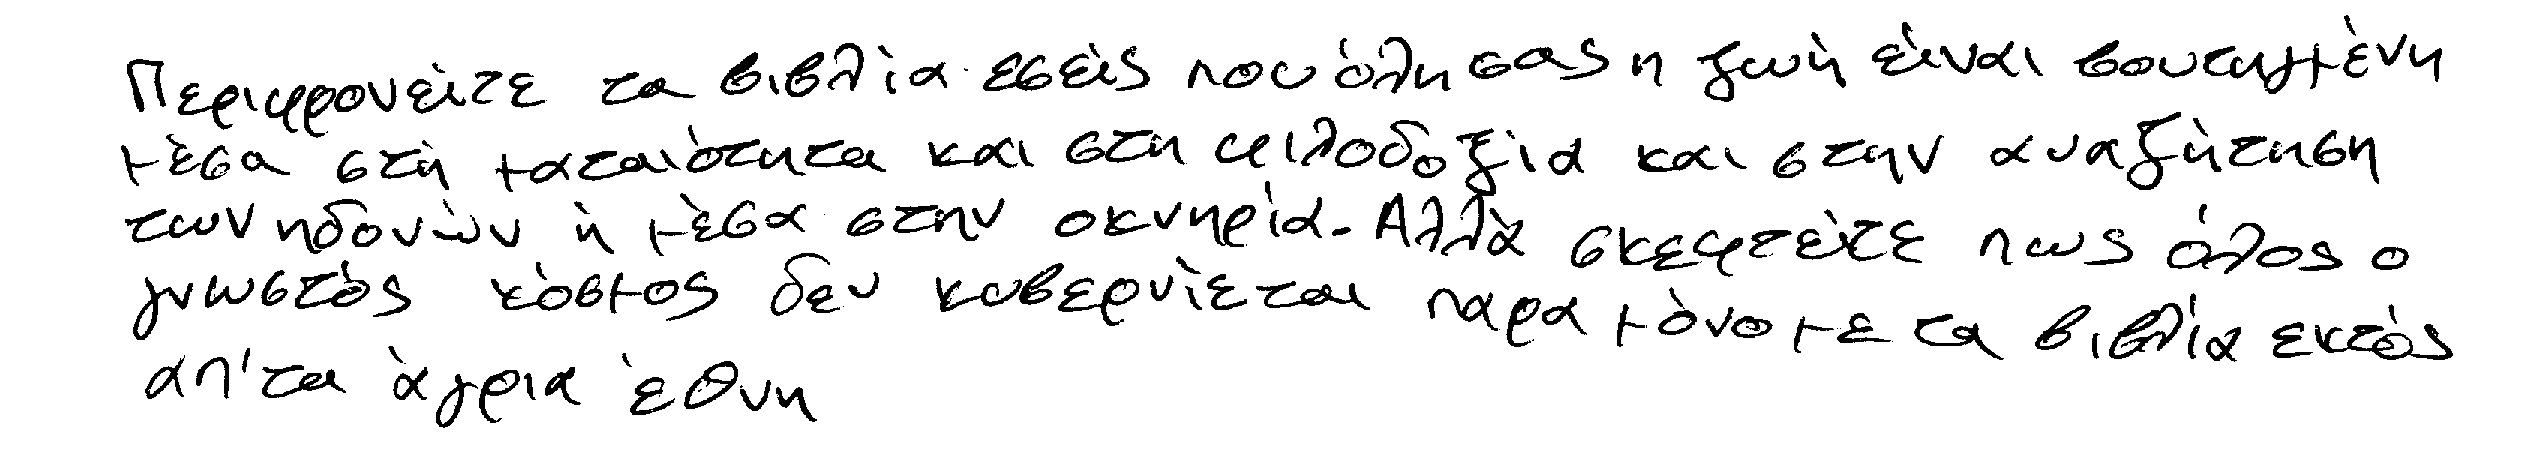 Περιφρονείτε τα βιβλία εσείς που όλη σας η ζωή είναι βουτηγμένη
μέσα στη ματαιότητα και στη φιλοδοξία και στην αναζήτηση
των ηδονών ή μέσα στην οκνηρία. Αλλά σκεφτείτε πως όλος ο
γνωστός κόσμος δεν κυβερνιέται παρά μόνο με τα βιβλία εκτός
απ' τα άγρια έθνη